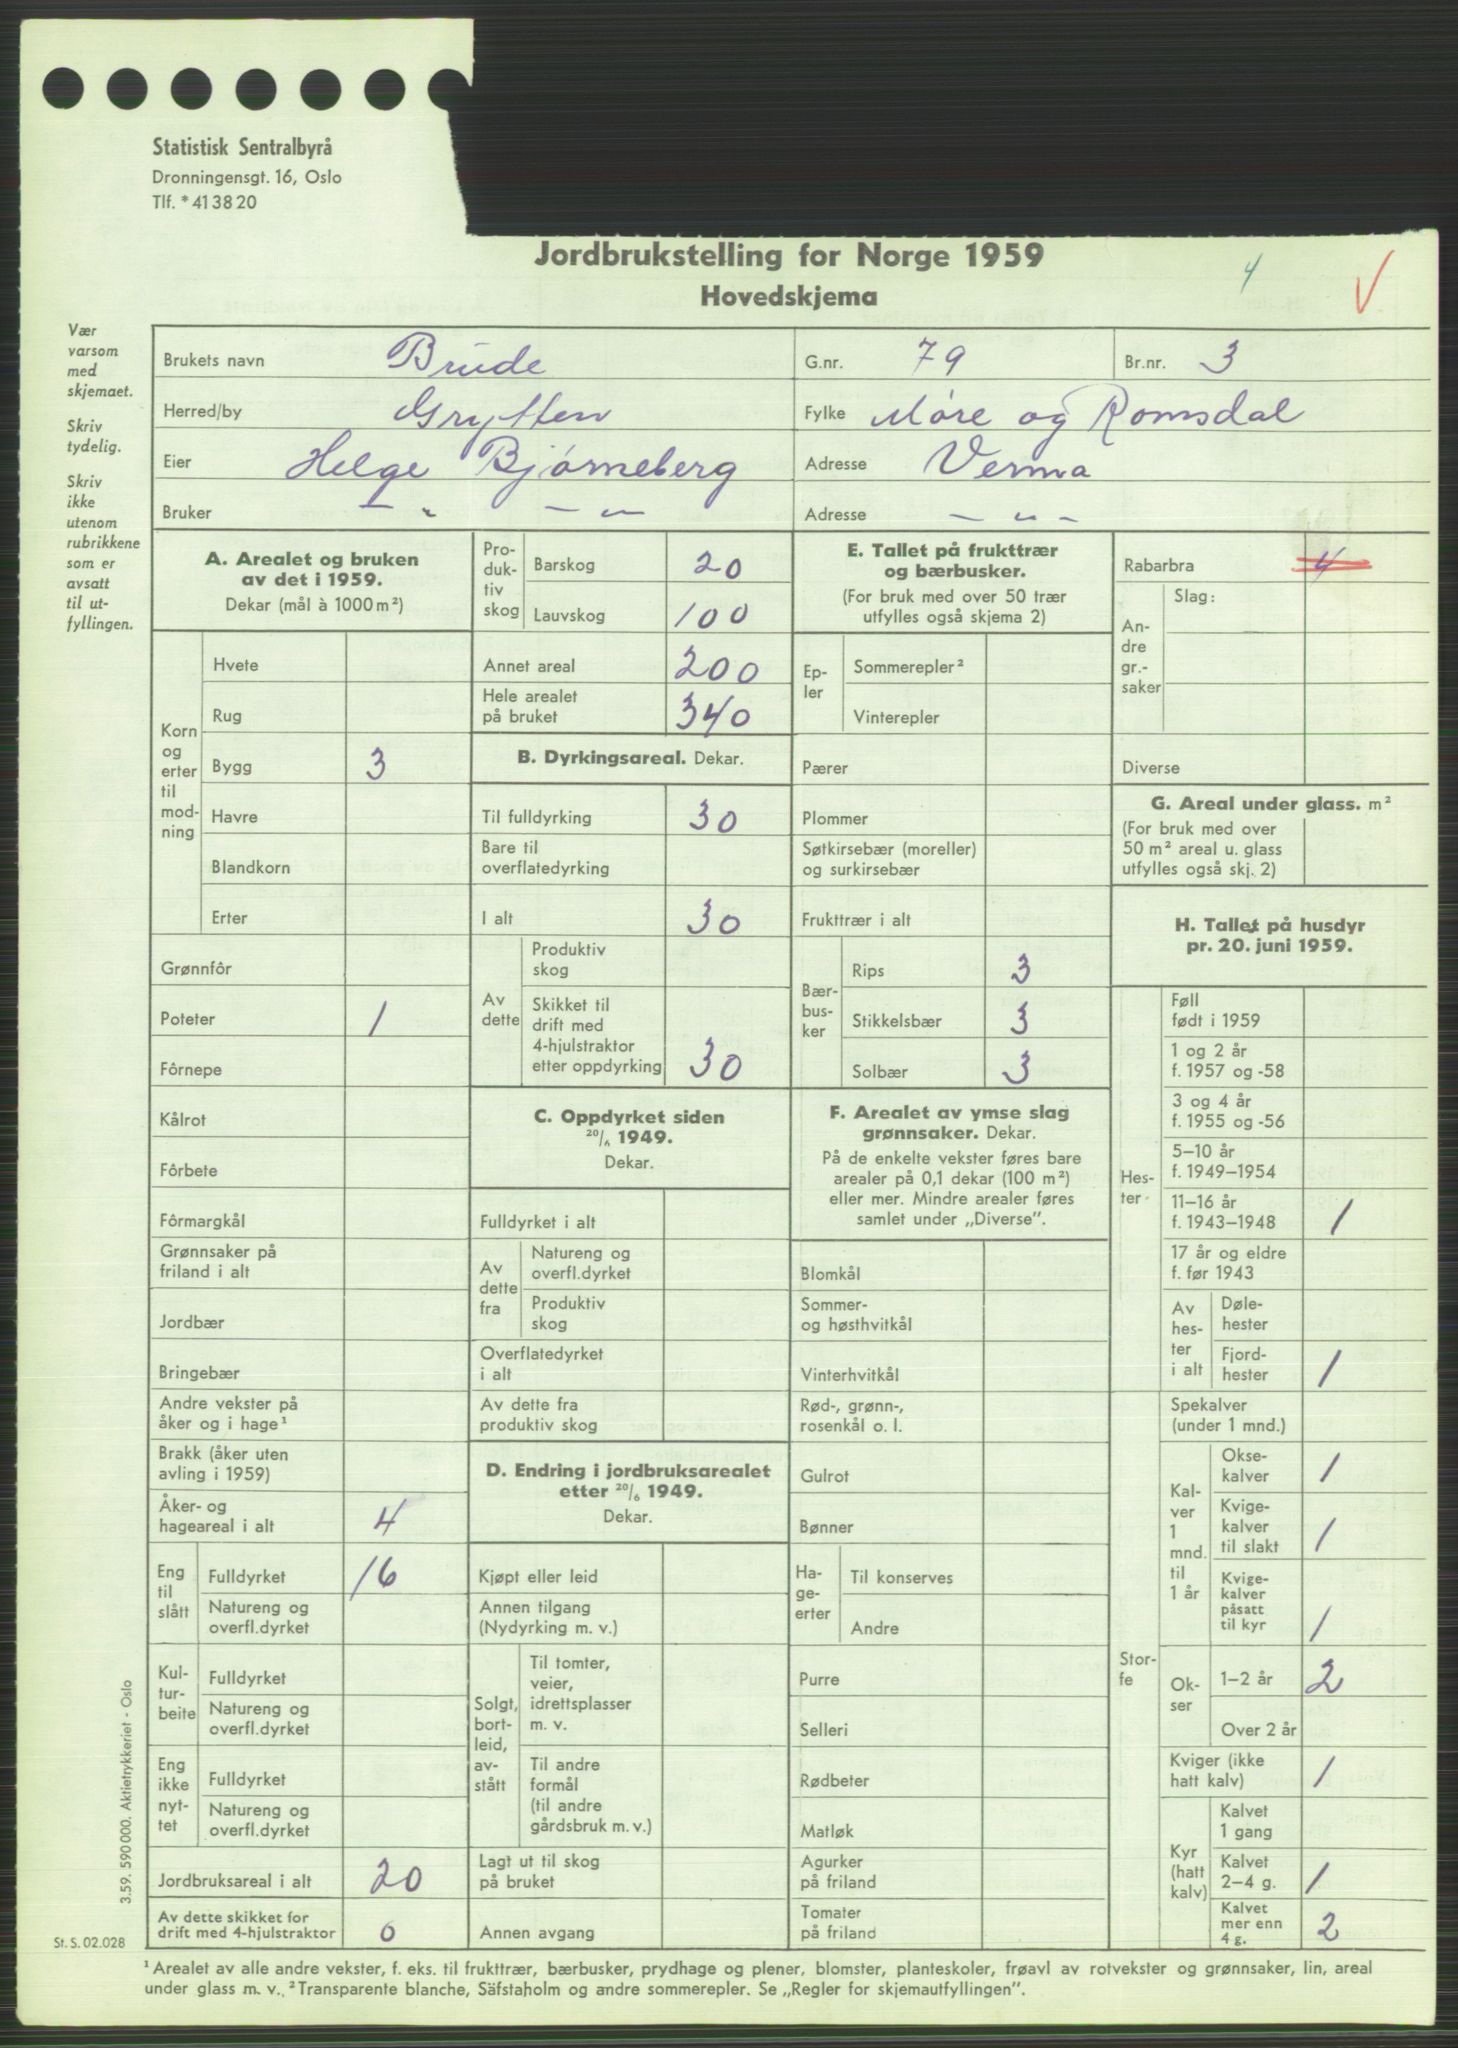 Statistisk Sentralbyrå
Dronningensgt. 16, Oslo
Tlf. * 41 38 20
Jordbrukstelling for Norge 1959
Hovedskjema
4
Vær
varsom
med
skjemaet.
Skriv
tydelig.
Skriv
ikke
utenom
rubrikkene
som er
avsatt
til ut-
fyllingen.
Brukets navn Brude G.nr. 79 Br.nr. 3
Herred/by Grytten Fylke Møre og Romsdal
Eier Helge Bjørneberg Adresse Verma
Bruker — " — " — Adresse — " —
A. Arealet og bruken
av det i 1959.
Dekar (mål à 1000 m²)
Korn
og
erter
til
mod-
ning
Hvete
Rug
Bygg 3
Havre
Blandkorn
Erter
Grønnfôr
Poteter 1
Fôrnepe
Kålrot
Fôrbete
Fôrmargkål
Grønnsaker på
friland i alt
Jordbær
Bringebær
Andre vekster på
åker og i hage ¹
Brakk (åker uten
avling i 1959)
Åker- og
hageareal i alt 4
Eng
til
slått
Fulldyrket 16
Natureng og
overfl.dyrket
Kul-
tur-
beite
Fulldyrket
Natureng og
overfl.dyrket
Eng
ikke
nyt-
tet
Fulldyrket
Natureng og
overfl.dyrket
Jordbruksareal i alt 20
Av dette skikket for
drift med 4-hjulstraktor 0
Pro-
duk-
tiv
skog
Barskog 20
Lauvskog 100
Annet areal 200
Hele arealet
på bruket 340
B. Dyrkingsareal. Dekar.
Til fulldyrking 30
Bare til
overflatedyrking
I alt 30
Av
dette
Produktiv
skog
Skikket til
drift med
4-hjulstraktor
etter oppdyrking 30
C. Oppdyrket siden
20/6 1949.
Dekar.
Fulldyrket i alt
Av
dette
fra
Natureng og
overfl.dyrket
Produktiv
skog
Overflatedyrket
i alt
Av dette fra
produktiv skog
D. Endring i jordbruksarealet
etter 20/6 1949.
Dekar.
Kjøpt eller leid
Annen tilgang
(Nydyrking m. v.)
Solgt,
bort-
leid,
av-
stått
Til tomter,
veier,
idrettsplasser
m. v.
Til andre
formål
(til andre
gårdsbruk m. v.)
Lagt ut til skog
på bruket
Annen avgang
E. Tallet på frukttrær
og bærbusker.
(For bruk med over 50 trær
utfylles også skjema 2)
Ep-
ler
Sommerepler ²
Vinterepler
Pærer
Plommer
Søtkirsebær (moreller)
og surkirsebær
Frukttrær i alt
Bær-
bus-
ker
Rips 3
Stikkelsbær 3
Solbær 3
F. Arealet av ymse slag
grønnsaker. Dekar.
På de enkelte vekster føres bare
arealer på 0,1 dekar (100 m²)
eller mer. Mindre arealer føres
samlet under „Diverse".
Blomkål
Sommer-
og høsthvitkål
Vinterhvitkål
Rød-, grønn-,
rosenkål o. l.
Gulrot
Bønner
Ha-
ge-
erter
Til konserves
Andre
Purre
Selleri
Rødbeter
Matløk
Agurker
på friland
Tomater
på friland
Rabarbra 4
An-
dre
gr.-
saker
Slag:
Diverse
G. Areal under glass. m²
(For bruk med over
50 m² areal u. glass
utfylles også skj. 2)
H. Tallet på husdyr
pr. 20. juni 1959.
Hes-
ter
Føll
født i 1959
1 og 2 år
f. 1957 og -58
3 og 4 år
f. 1955 og -56
5–10 år
f. 1949–1954
11–16 år
f. 1943–1948 1
17 år og eldre
f. før 1943
Av
hes-
ter
i alt
Døle-
hester
Fjord-
hester 1
Stor-
fe
Spekalver
(under 1 mnd.)
Kal-
ver
1
mnd.
til
1 år
Okse-
kalver 1
Kvige-
kalver
til slakt 1
Kvige-
kalver
påsatt
til kyr 1
Ok-
ser
1–2 år 2
Over 2 år
Kviger (ikke
hatt kalv) 1
Kyr
(hatt
kalv)
Kalvet
1 gang
Kalvet
2–4 g. 1
Kalvet
mer enn
4 g. 2
3.59. 590 000. Aktietrykkeriet - Oslo
St. S. 02.028
¹ Arealet av alle andre vekster, f. eks. til frukttrær, bærbusker, prydhage og plener, blomster, planteskoler, frøavl av rotvekster og grønnsaker, lin, areal
under glass m. v. ² Transparente blanche, Säfstaholm og andre sommerepler. Se „Regler for skjemautfyllingen".